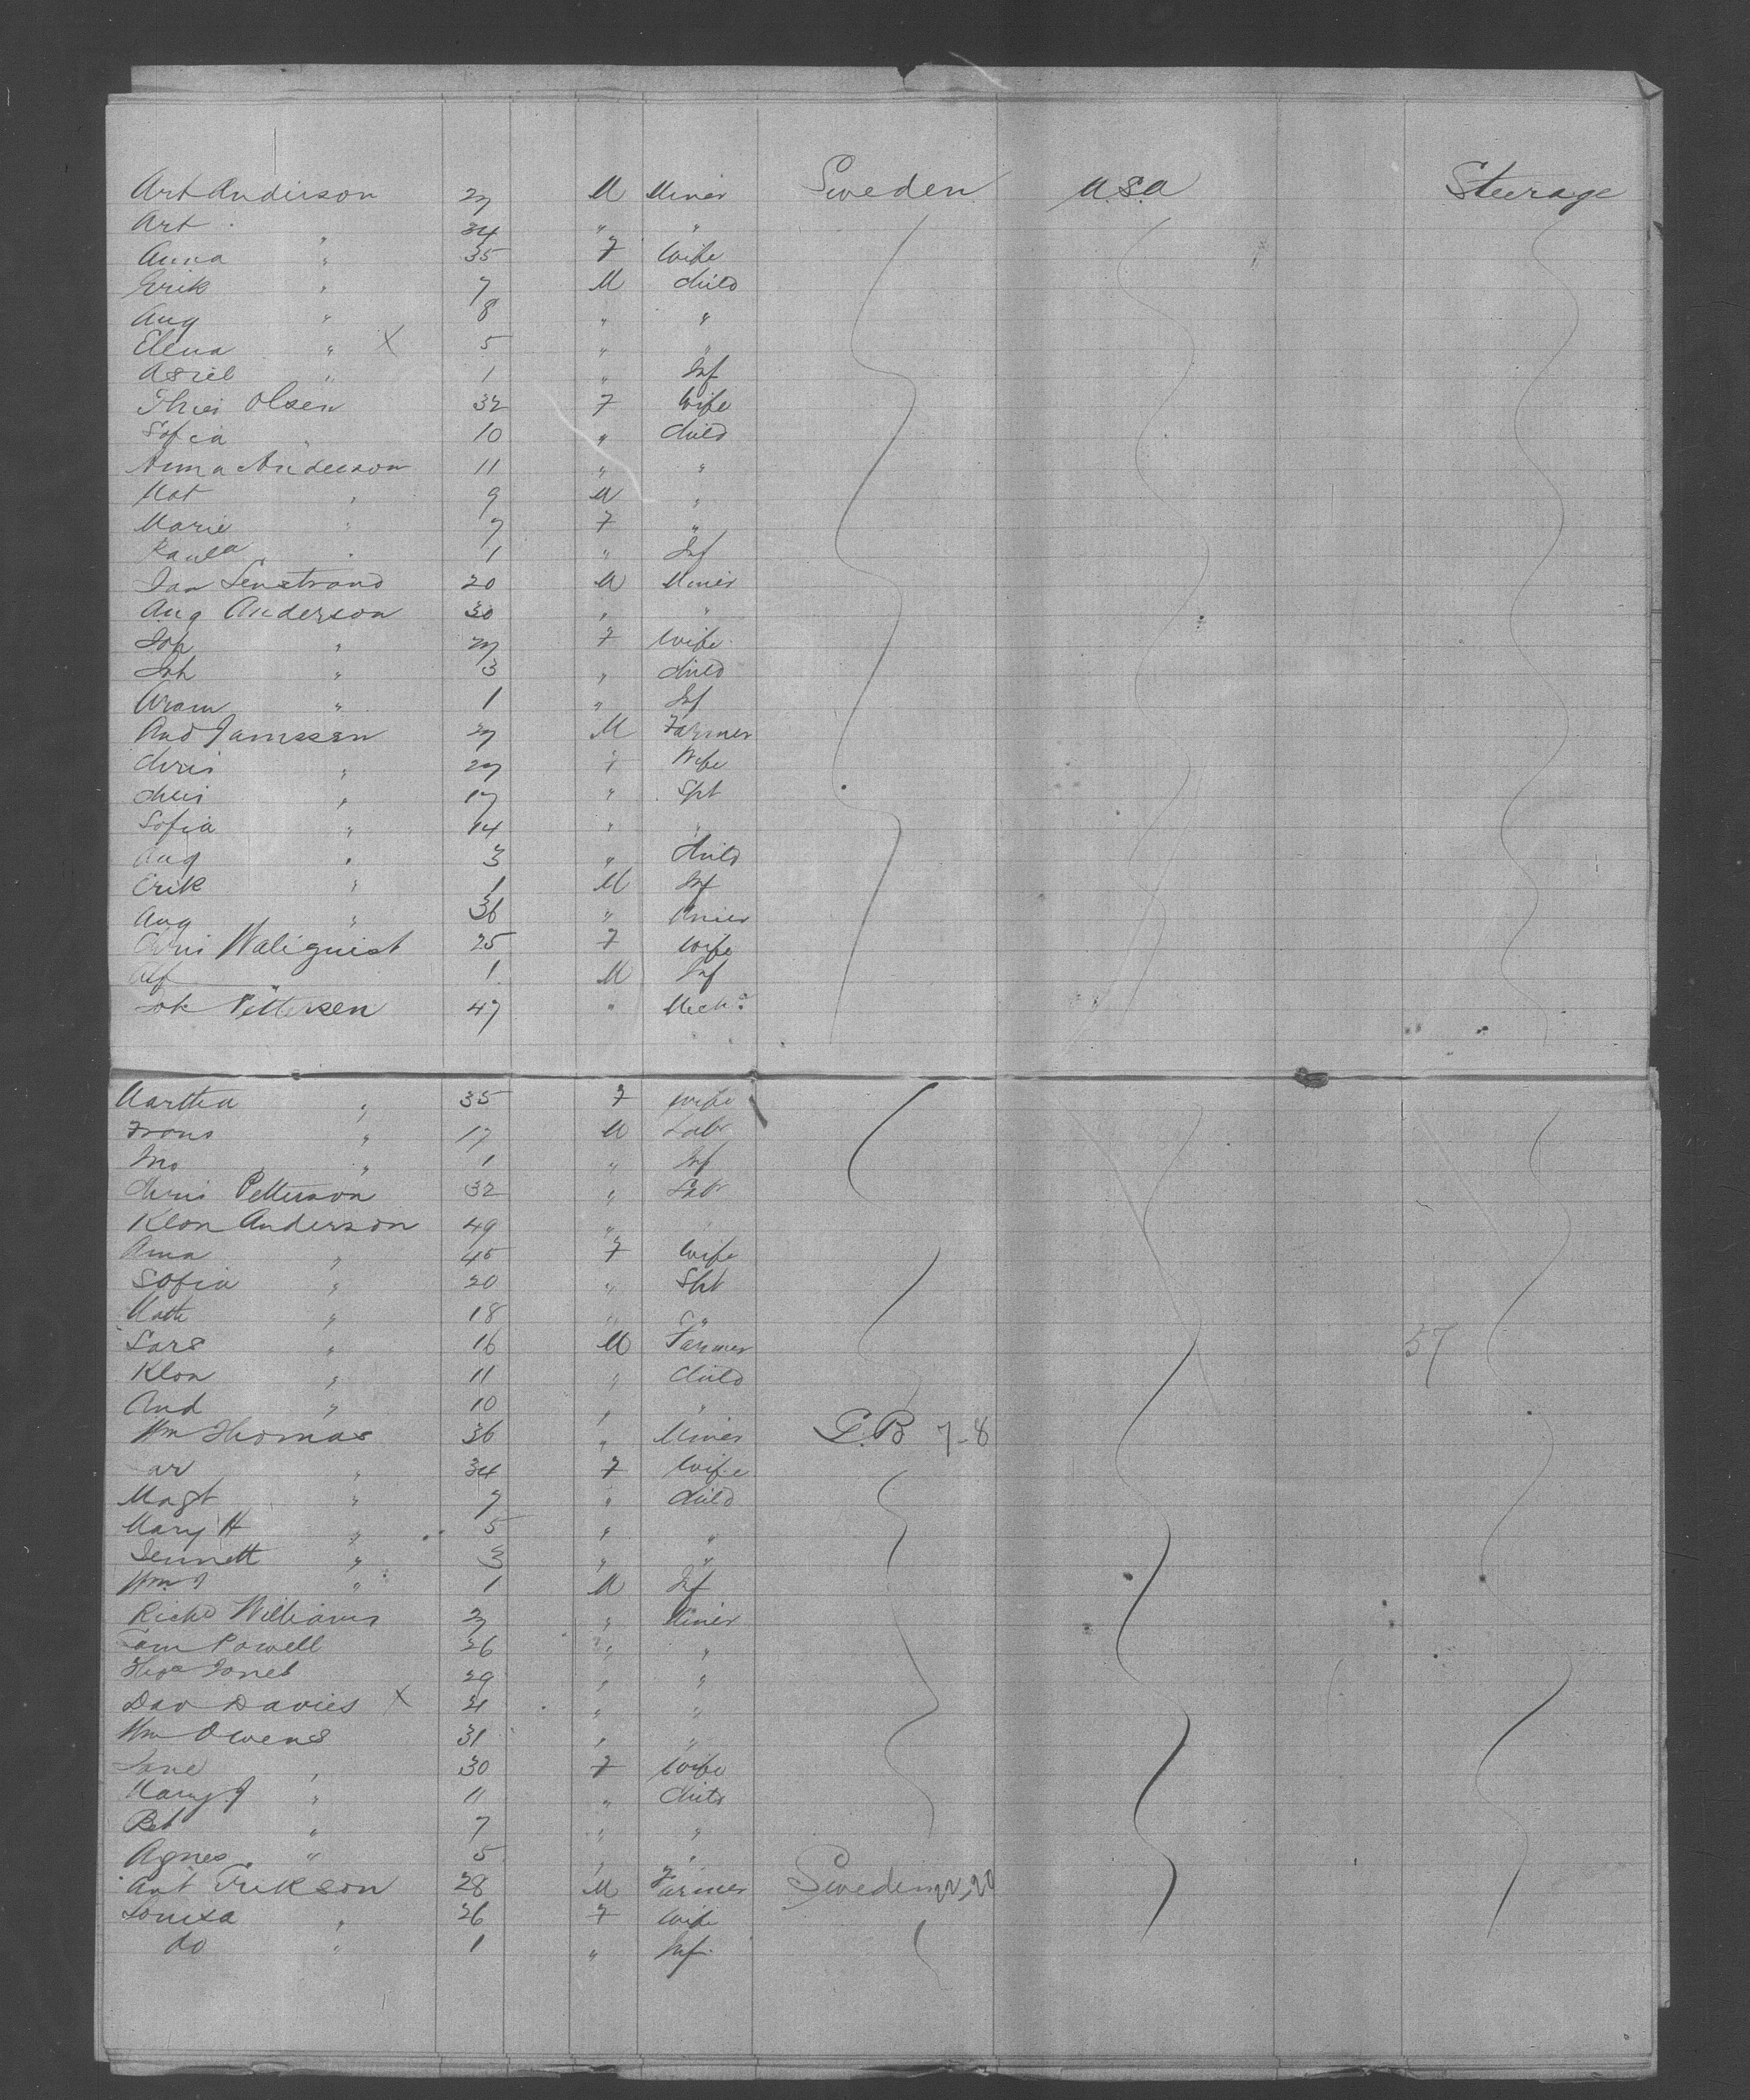 Art Anderson 27 M Miner Sweden U.S.A Steerage
Art " 34 " "
Anna " 35 F Wife
Erik " 7 M Child
Aug " 8 " "
Elena " X 5 " "
Asriel " 1 " Inf
Olsen 32 F Wife
Sofia " 10 " Child
Anna Anderson 11 " "
Mat " 9 M "
Marie " 7 F "
Paula " 1 " Inf
Jan Lenstrand 20 M Miner
Aug Anderson 30 " "
Soh " 27 F Wife
Joh " 3 " Child
" 1 " Inf
And Janssen 27 M Farmer
Chris " 27 F Wife
Chris " 17 " Spt
Sofia " 14 " "
Aug " 3 " Child
Erik " 1 M Inf
Aug " 36 " Miner
Chris Waliquist 25 F Wife
Alf 1 M Inf
Joh Pettersen 47 " Mech
Martha " 35 F Wife
Frans " 17 M Labr
Jno " 1 " Inf
Chris Petterson 32 " Labr
Klon Anderson 49 " "
Anna " 45 F Wife
Sofia " 20 " Spt
Math " 18 " "
Lars " 16 M Farmer 57
Klon " 11 " Child
And " 10 " "
Wm Thomas 36 " Miner G.B 7-8
" 34 F Wife
Magt " 7 " Child
Mary H " 5 " "
Jennett " 3 " "
Wm J " 1 M Inf
Richd Williams 27 " Miner
Tom Powell 26 " "
Thos Jones 29 " "
Dav Davies X 21 " "
Wm Owens 31 " "
Jane " 30 F Wife
Mary J " 11 " Child
Bet " 7 " "
Agnes " 5 " "
Ant Erikson 28 M Farmer Sweden 22-20
Louisa " 26 F Wife
do " 1 " Inf.